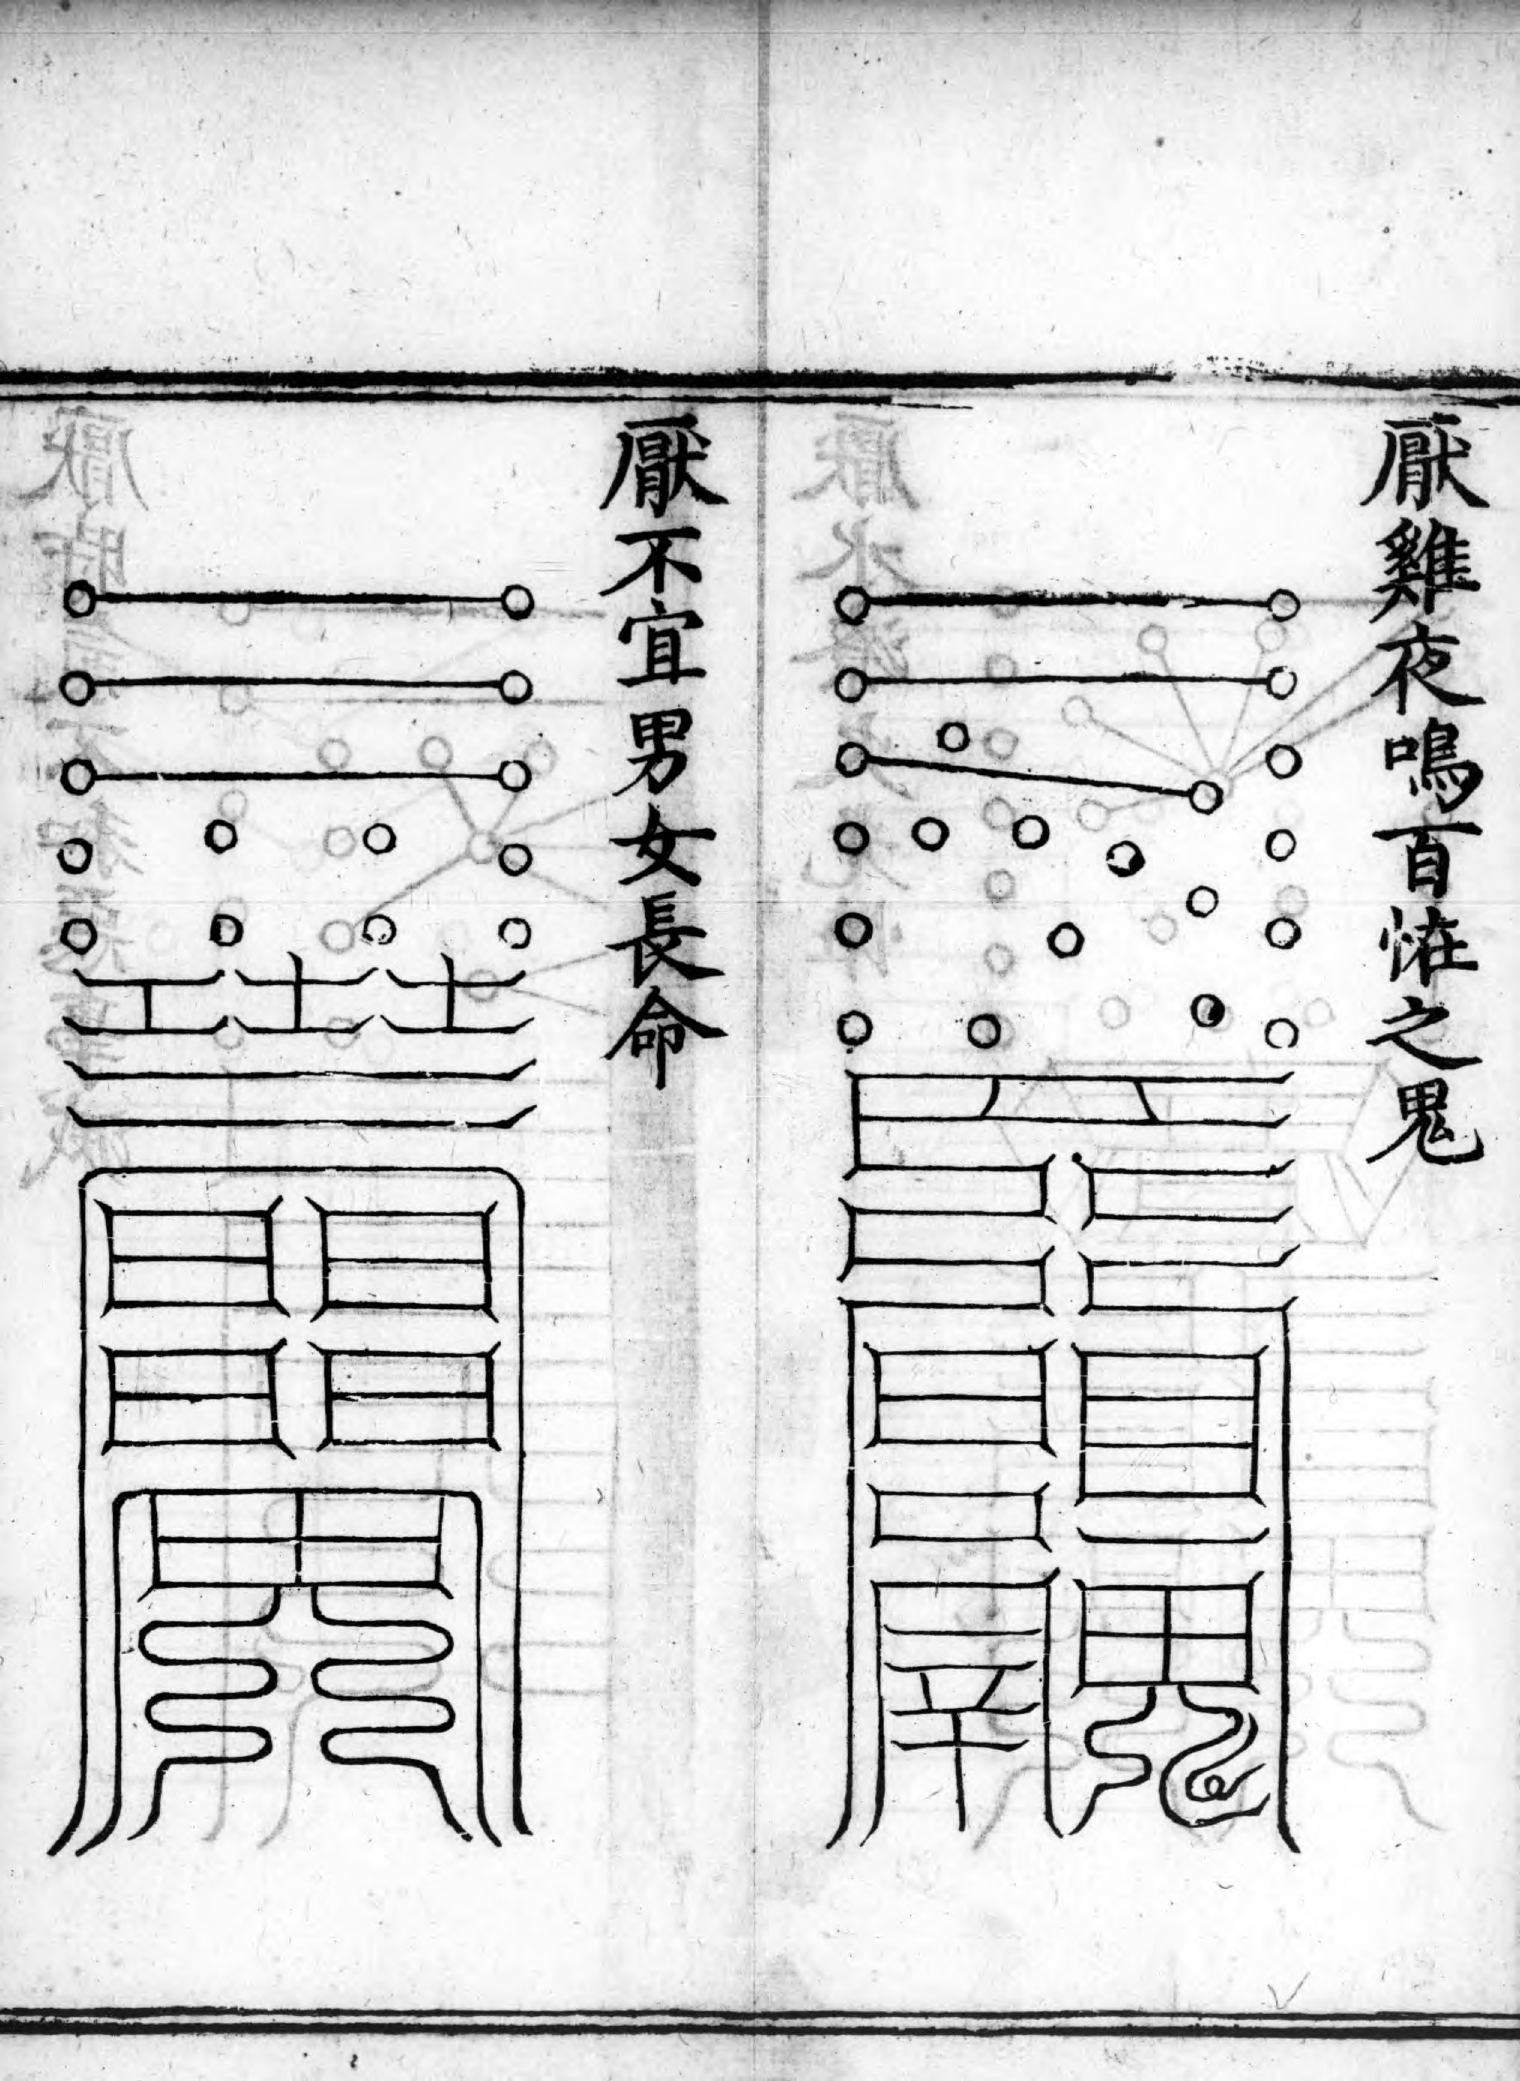 厭雞夜鳴百恠之鬼
厭不宜男女長命